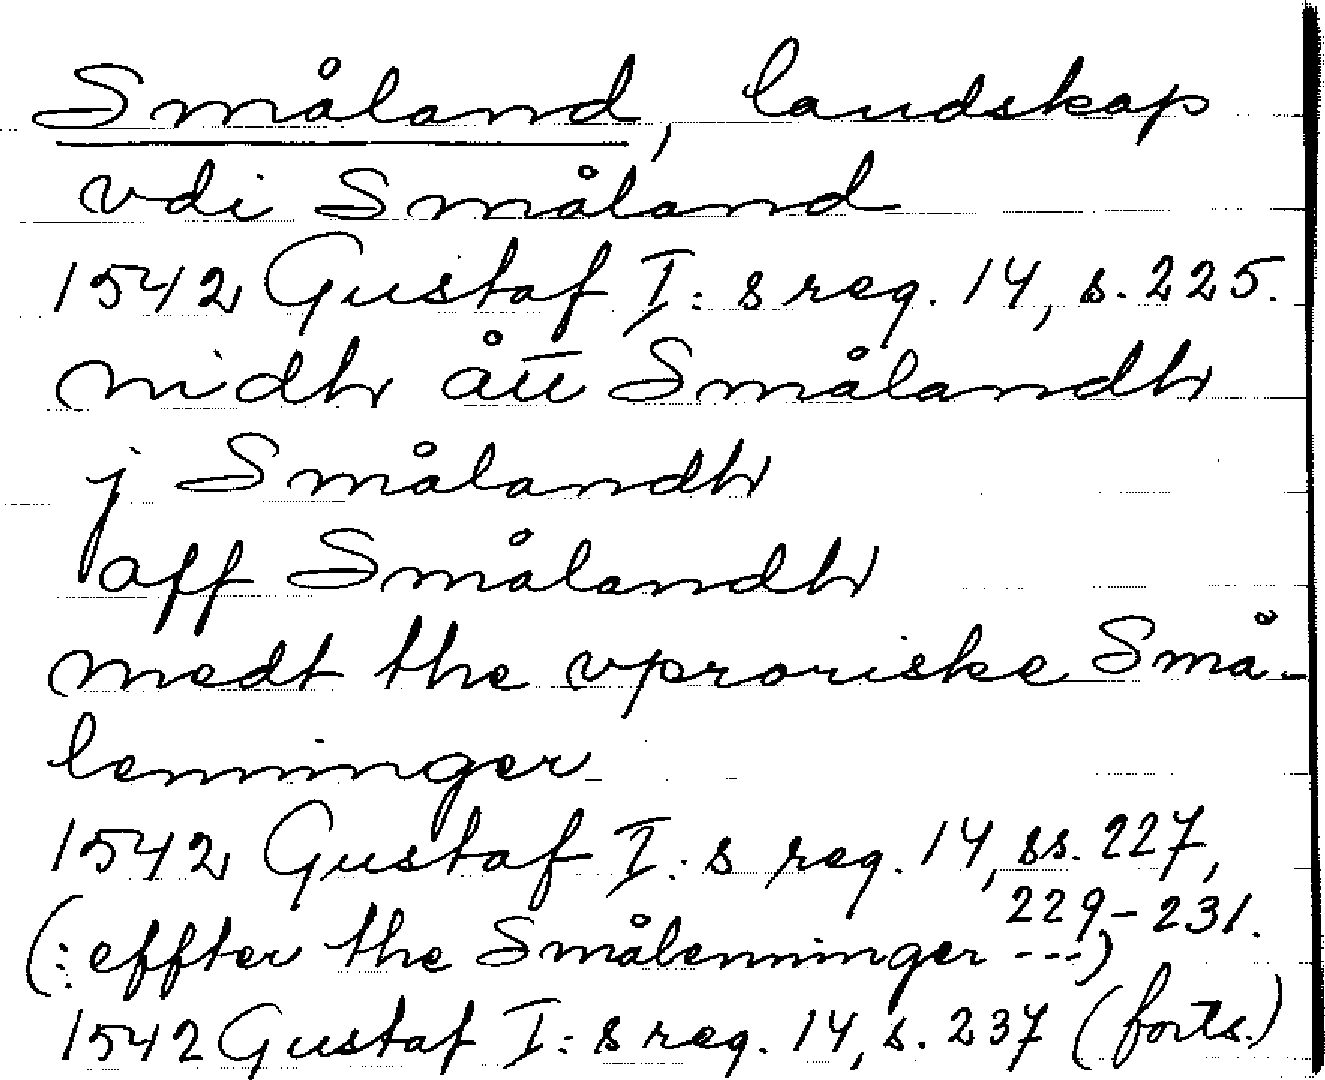 Småland, landskap
vdi Småland
1542 Gustaf I:s reg. 14, s. 225.
nidh ått Smålandh
j Smålandh
aff Smålandh
medt the vproriske Små-
lenninger
1542 Gustaf I:s reg. 14, ss. 227,
229-231.
(: effter the Smålenninger ---)
1542 Gustaf I:s reg. 14, s. 237 (forts.)